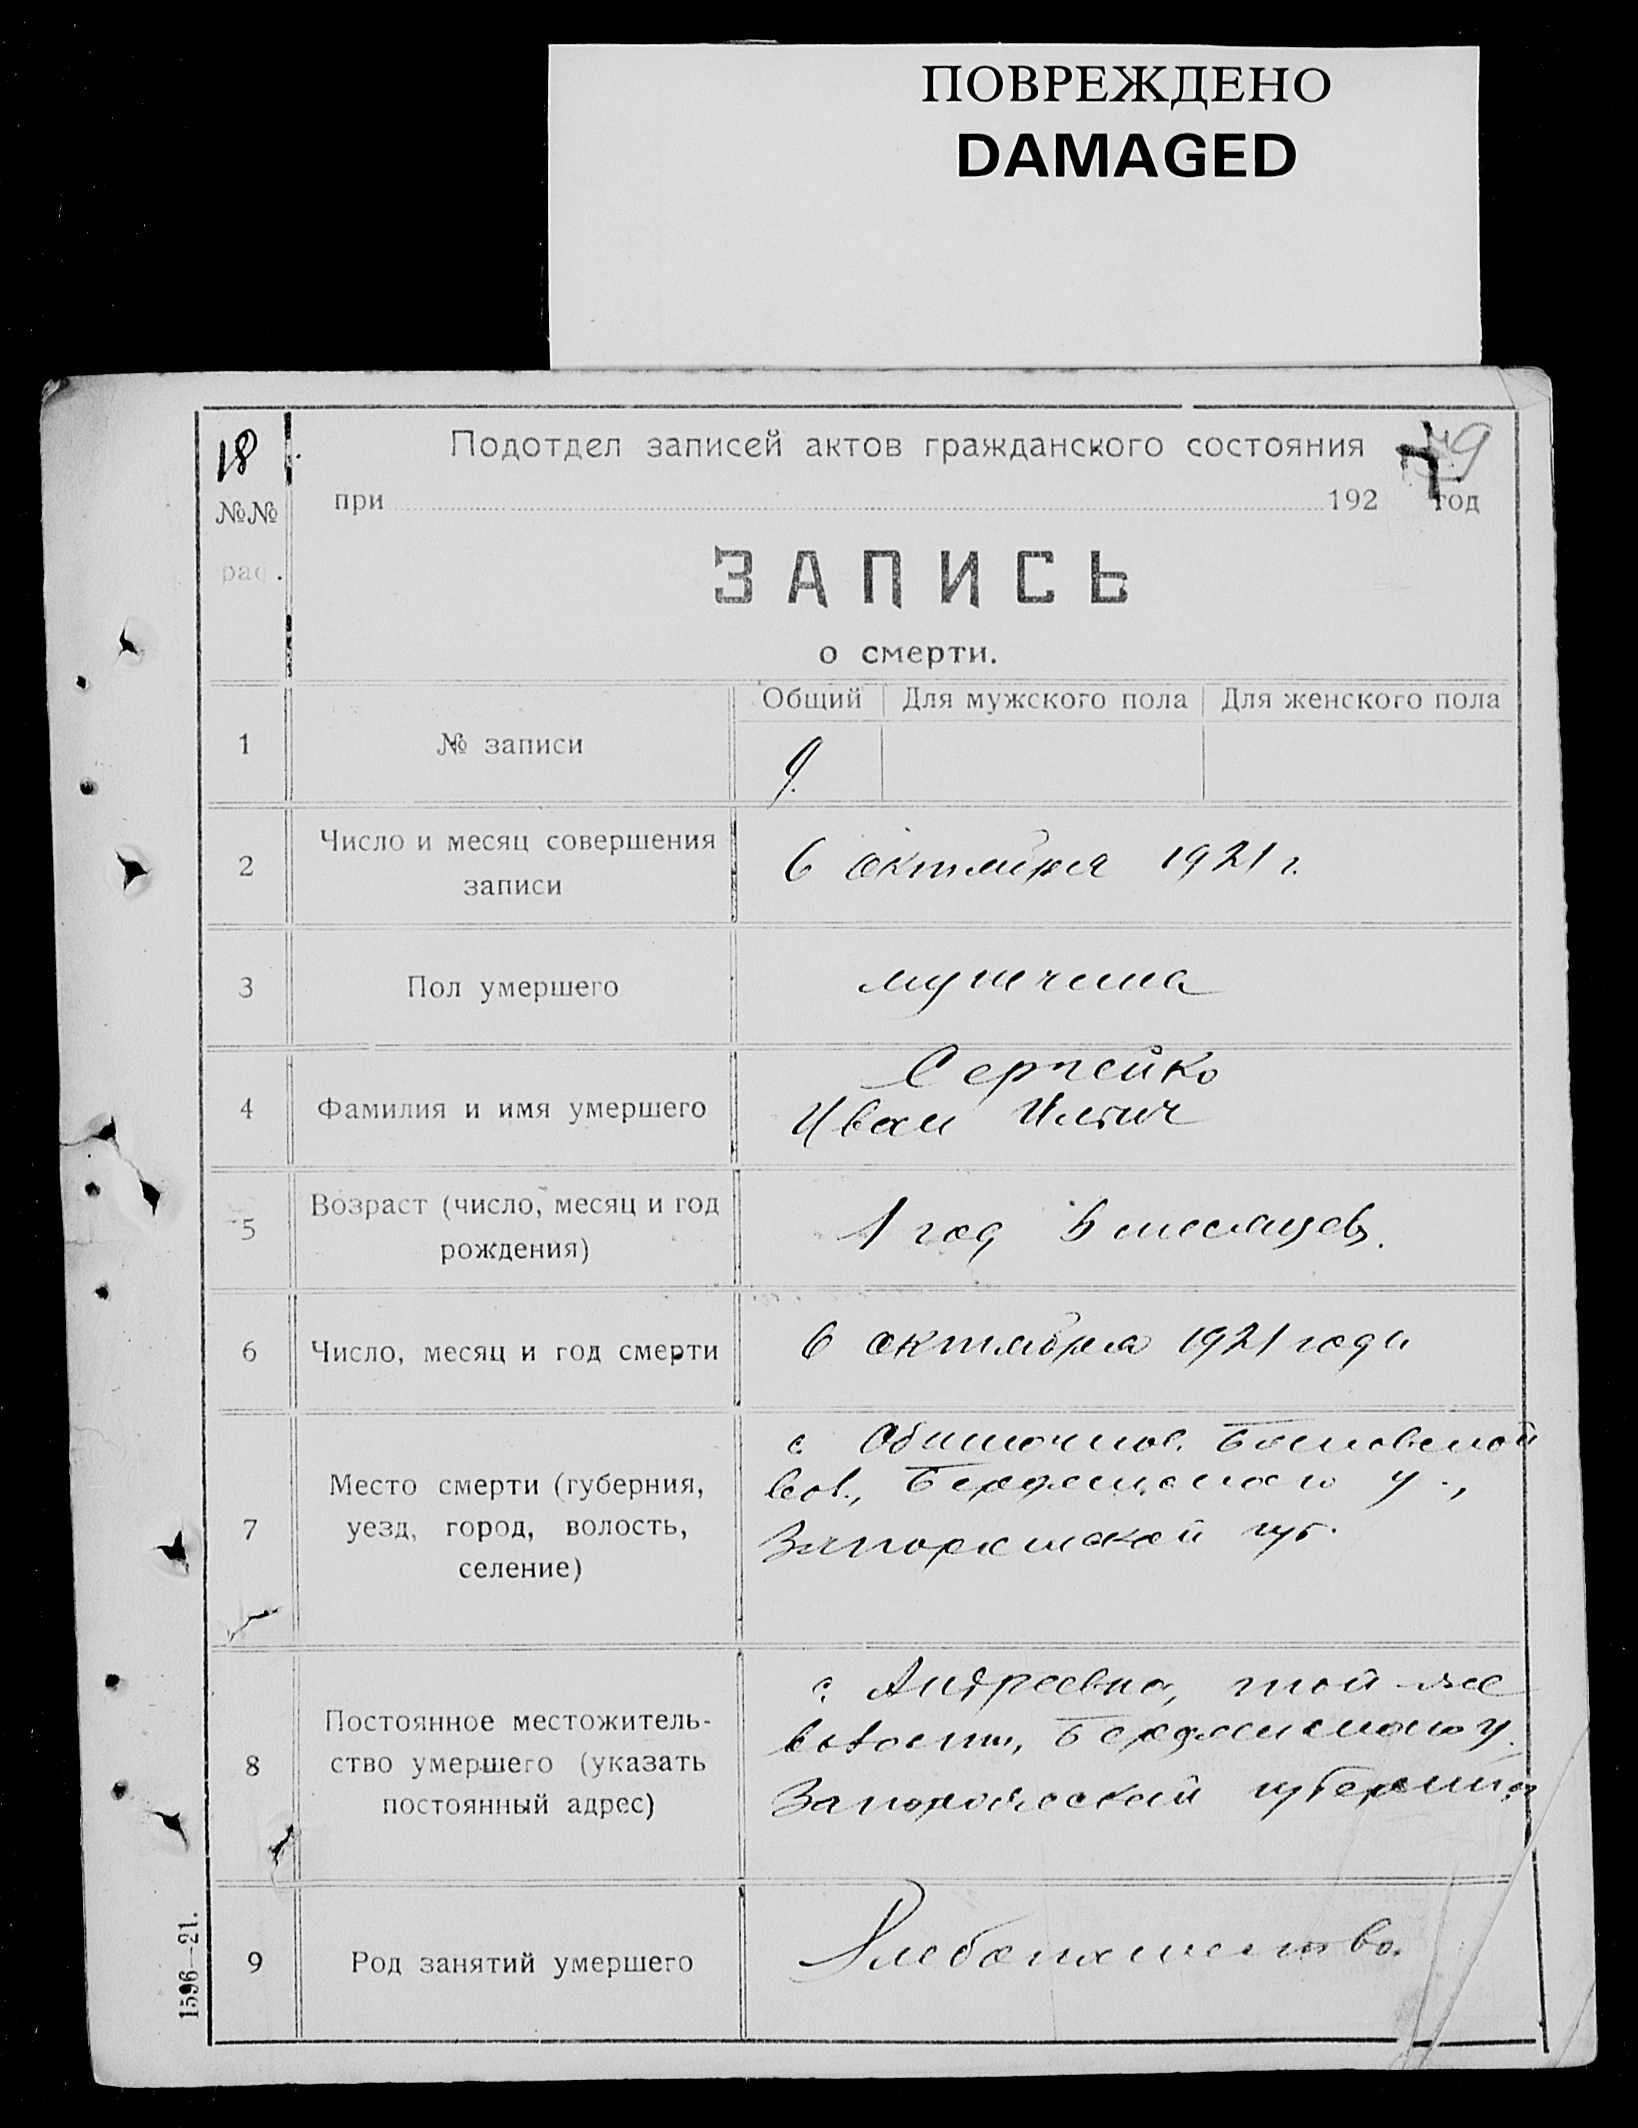 ПОВРЕЖДЕНО
DAMAGED
18
Подотдел записей актов гражданского состояния
№№
при 192 год
ЗАПИСЬ
о смерти.
Общий Для мужского пола Для женского пола
1 № записи 9.
2 Число и месяц совершения
записи
6 октября 1921 г.
3 Пол умершего мужчина
4 Фамилия и имя умершего
Сергейко
Иван Ильич
5 Возраст (число, месяц и год
рождения)
1 год 5 месяцев.
6 Число, месяц и год смерти 6 октября 1921 года
7 Место смерти (губерния,
уезд, город, волость,
селение)
с.
вол., Бердянского у.,
Запорожской губ.
8 Постоянное местожитель-
ство умершего (указать
постоянный адрес)
с. Андреевка, той же
волости, Бердянского у.
Запорожской губернии
9 Род занятий умершего Хлебопашество.
1596—21.